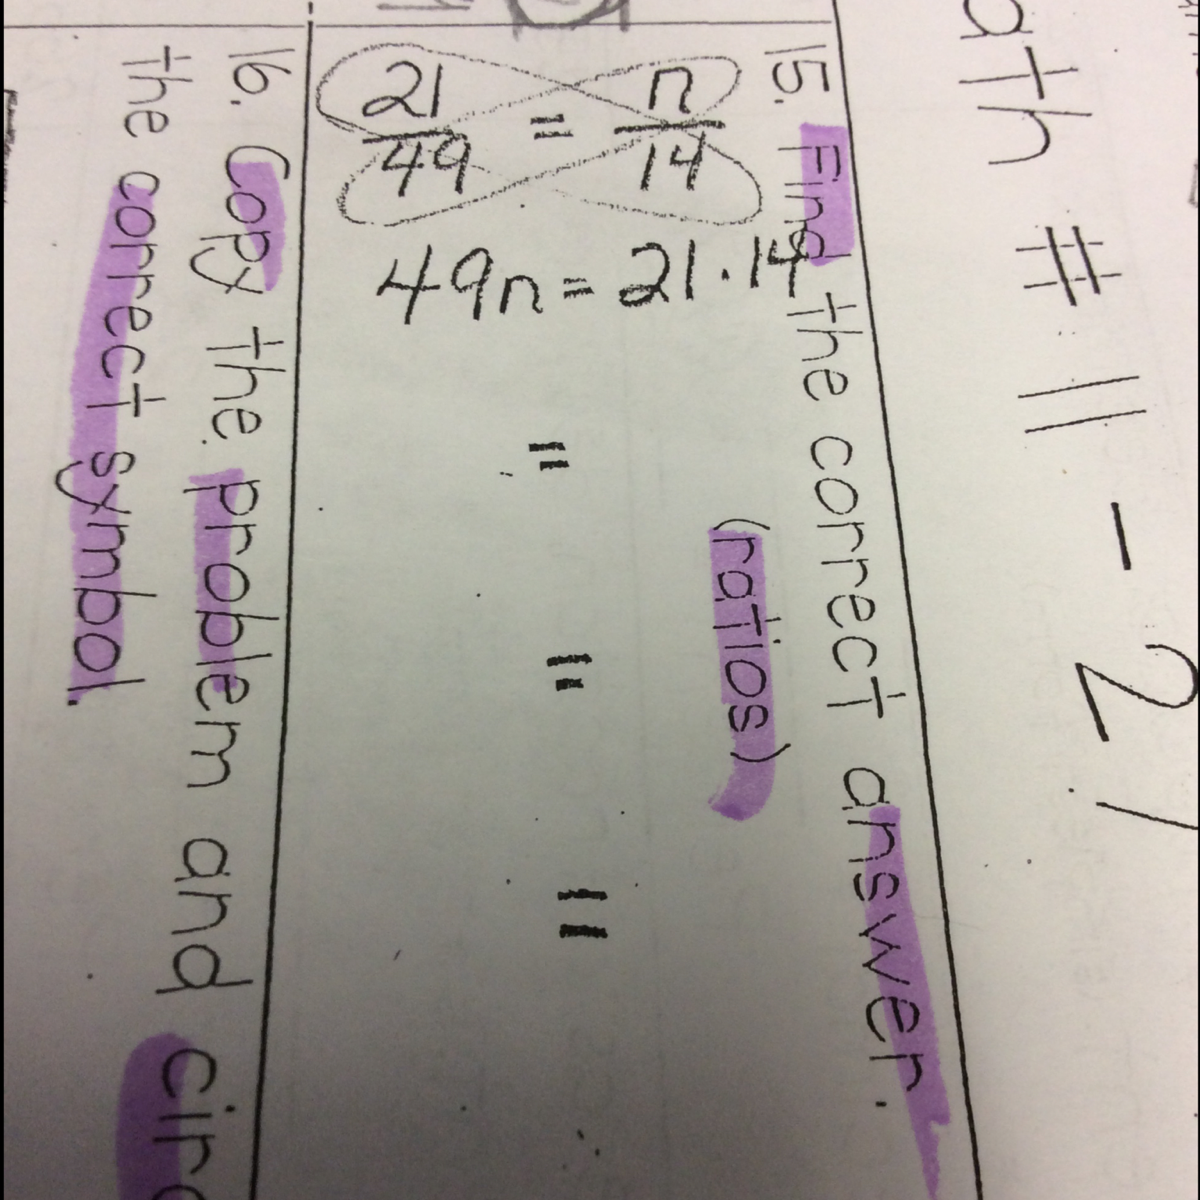 ath # 11 - 2
15. Find the correct answer.
(ratios)
21/49 = n/14
49n = 21·14
=
=
=
16. Copy the problem and
the correct symbol.